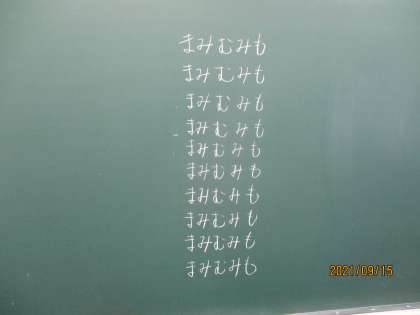 まみむみも
まみむみも
まみむみも
まみむみも
まみむみも
まみむみも
まみむみも
まみむみも
まみむみも
まみむみも
2021/09/15